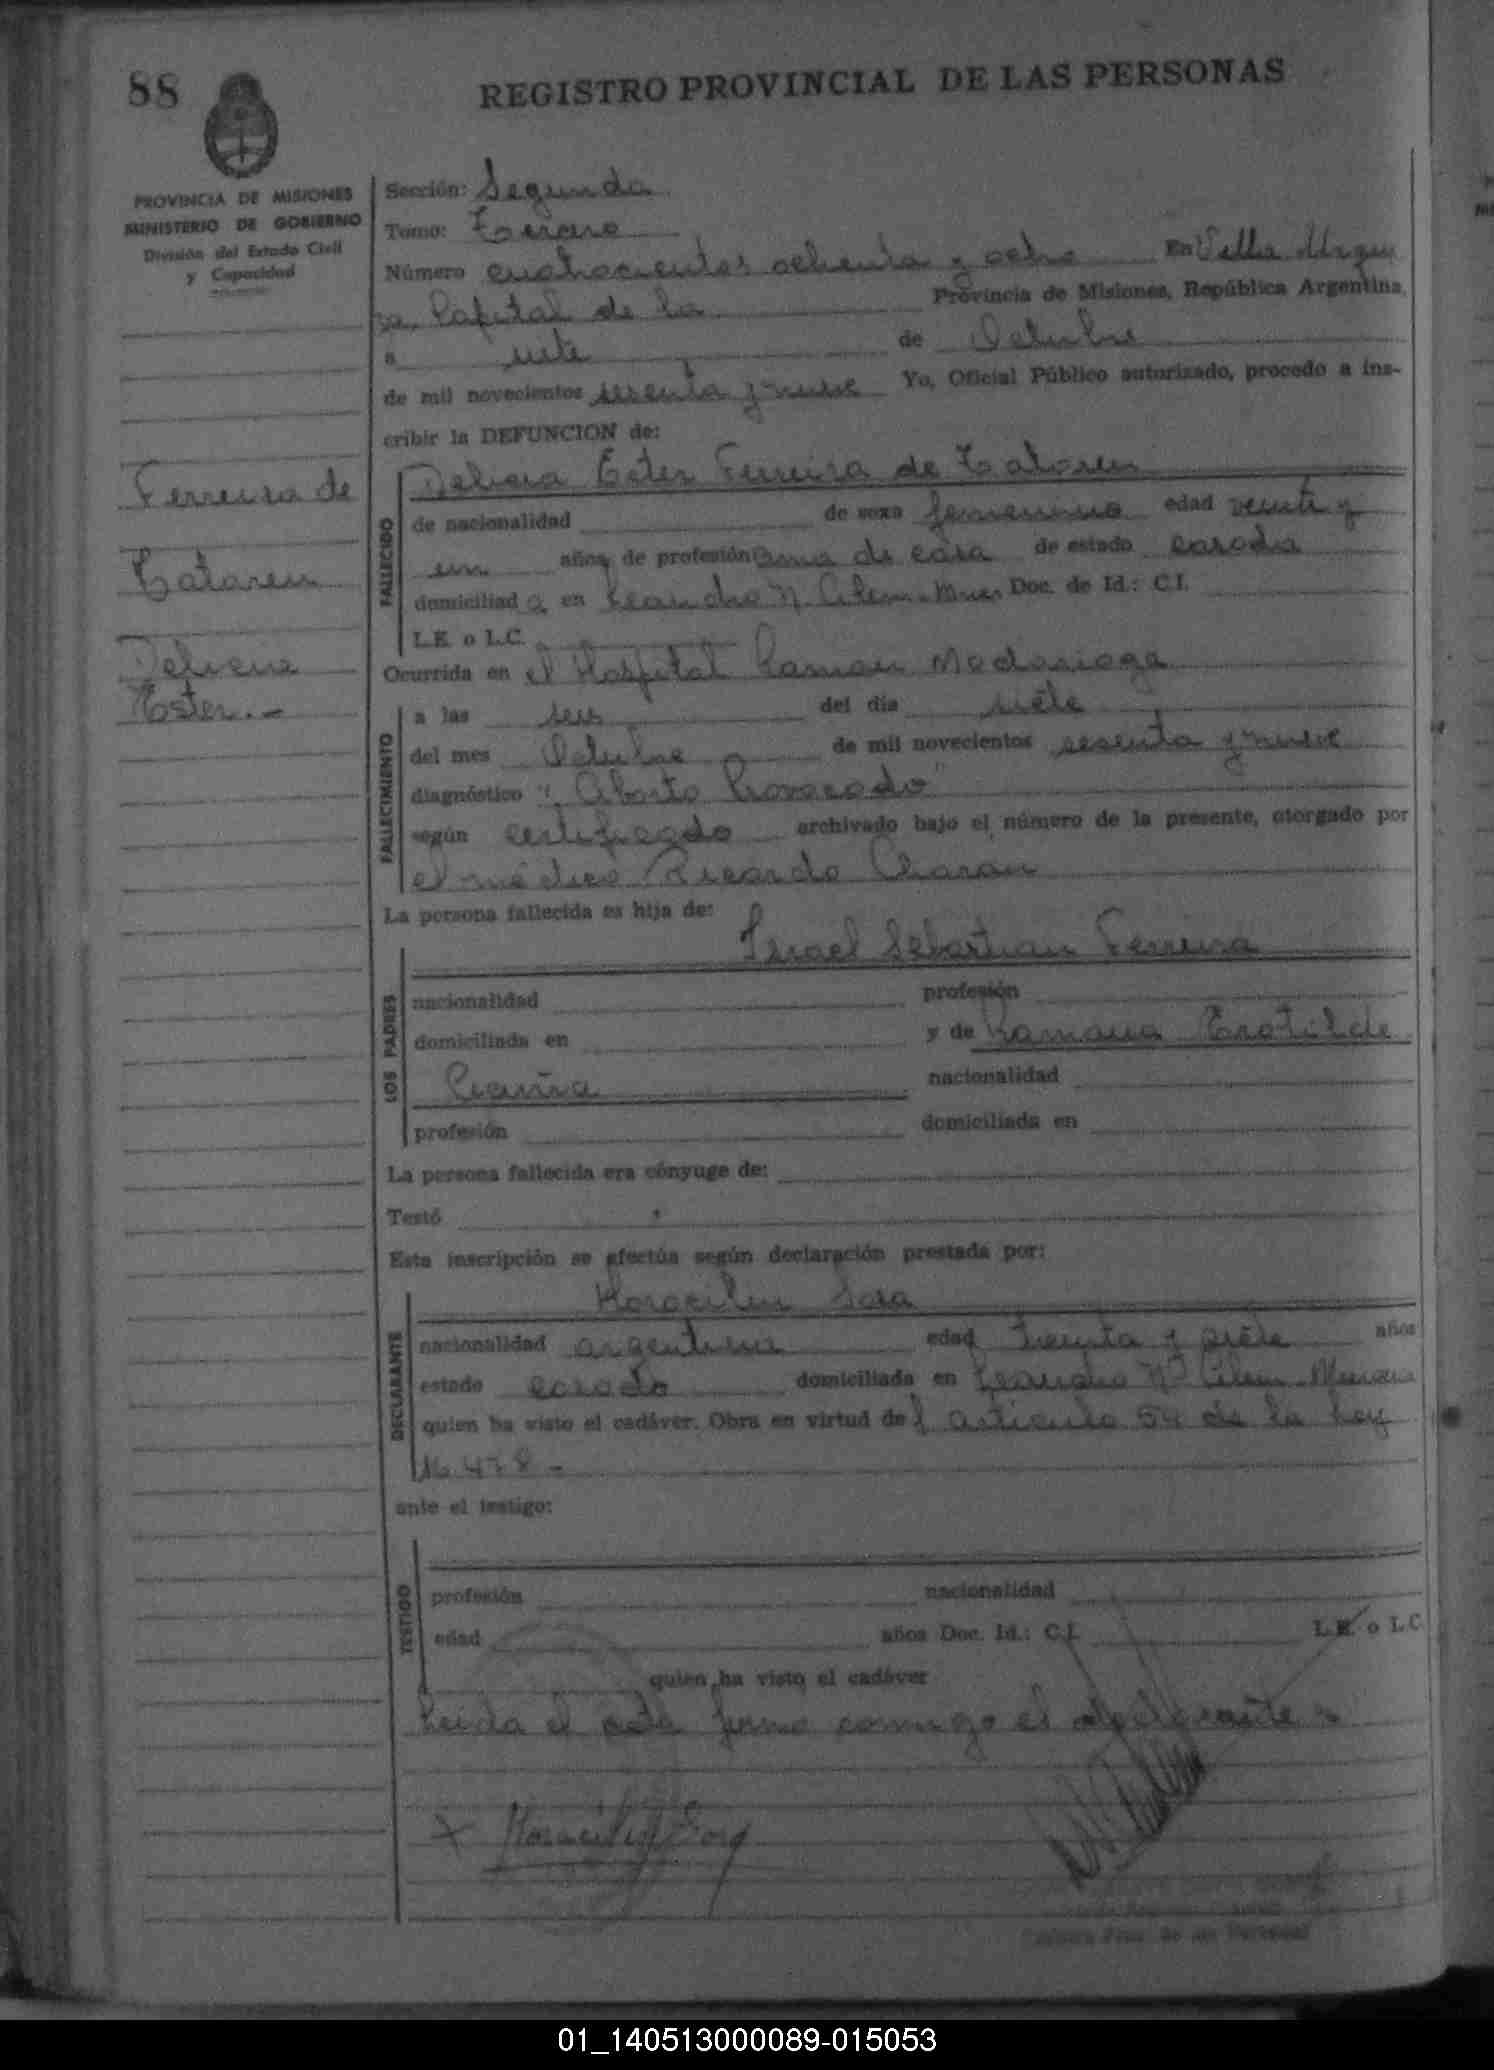 88
REGISTRO PROVINCIAL DE LAS PERSONAS
PROVINCIA DE MISIONES
MINISTERIO DE GOBIERNO
División del Estado Civil
y Capacidad
Ferreira de
Tataren
Delicia
Ester.-
Sección: Segunda
Tomo: Tercero
Número cuatrocientos ochenta y ocho En Villa Urqui
za, Capital de la Provincia de Misiones, República Argentina,
a siete de Octubre
de mil novecientos sesenta y nueve Yo, Oficial Público autorizado, procedo a ins-
cribir la DEFUNCION de:
FALLECIDO
Delicia Ester Ferreira de Tataren
de nacionalidad de sexo femenino edad veinte y
un años de profesión ama de casa de estado casada
domiciliad a en Leandro N. Alem - Mnes Doc. de Id.: C.I.
L.E. o L.C.
Ocurrida en el Hospital Ramon Madariaga
FALLECIMIENTO
a las seis del día siete
del mes Octubre de mil novecientos sesenta y nueve
diagnóstico "Aborto Provocado"
según certificado archivado bajo el número de la presente, otorgado por
el médico Ricardo
La persona fallecida es hija de:
LOS PADRES
Israel Sebastian Ferreira
nacionalidad profesión
domiciliada en y de Ramona Erotilde
nacionalidad
profesión domiciliada en
La persona fallecida era cónyuge de:
Testó
Esta inscripción se efectúa según declaración prestada por:
DECLARANTE
nacionalidad argentina edad treinta y siete años
estado casado domiciliada en Leandro N. Alem - Misiones
quien ha visto el cadáver. Obra en virtud del articulo 54 de la Ley
16.478 -
ante el testigo:
TESTIGO
profesión nacionalidad
edad años Doc. Id.: C.I. L.E. o L.C.
quien ha visto el cadáver
Leida el acta firma conmigo el declarante
01_140513000089-015053